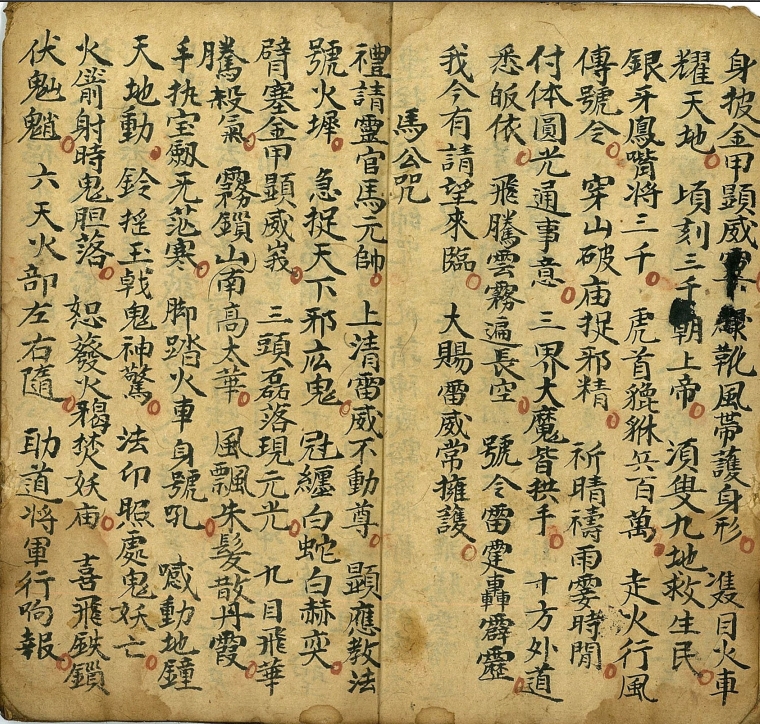 身披金甲顕威靴風帯護身形 火車
耀天地 頃刻三千朝上帝 須臾九地救生民
銀牙鳳嘴将三千 虎首貔貅兵百萬 走火行風
傳號令 穿山破庙捉邪精 祈晴禱雨霎時間
付体圓光通事意 三界大魔皆拱手 十方外道
悉皈依 飛騰雲霧遍長空 號令雷霆轟霹靂
我今有請望來臨 大賜雷威常擁護
馬公咒
禮請靈官馬元帥 上清雷威不動尊 顕應教法
號火墀 急捉天下邪広鬼 冠纏白蛇白赫奕
臂塞金甲顕威 三頭磊落現元光 九目飛華
騰殺氣 霧鎖山南高太華 風飄朱髮散丹霞
手执宝劔 寒 脚踏火車身號吼 喊動地鐘
天地動 鈴摇玉戟鬼神驚 法印照處鬼妖亡
火箭射時鬼胆落 恕發火鞨焚妖庙 喜飛鉄鎖
伏魁魈 六天火部左右随 助道将軍行响報